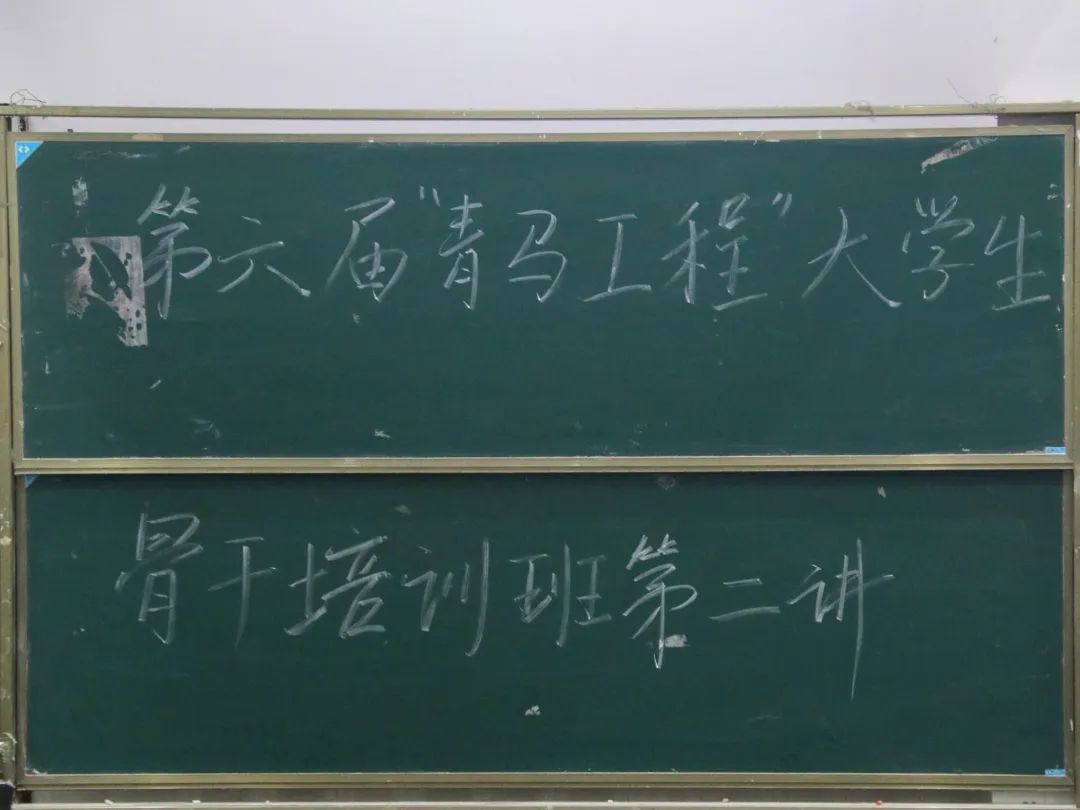 第六届"青马工程"大学生
骨干培训班第二讲